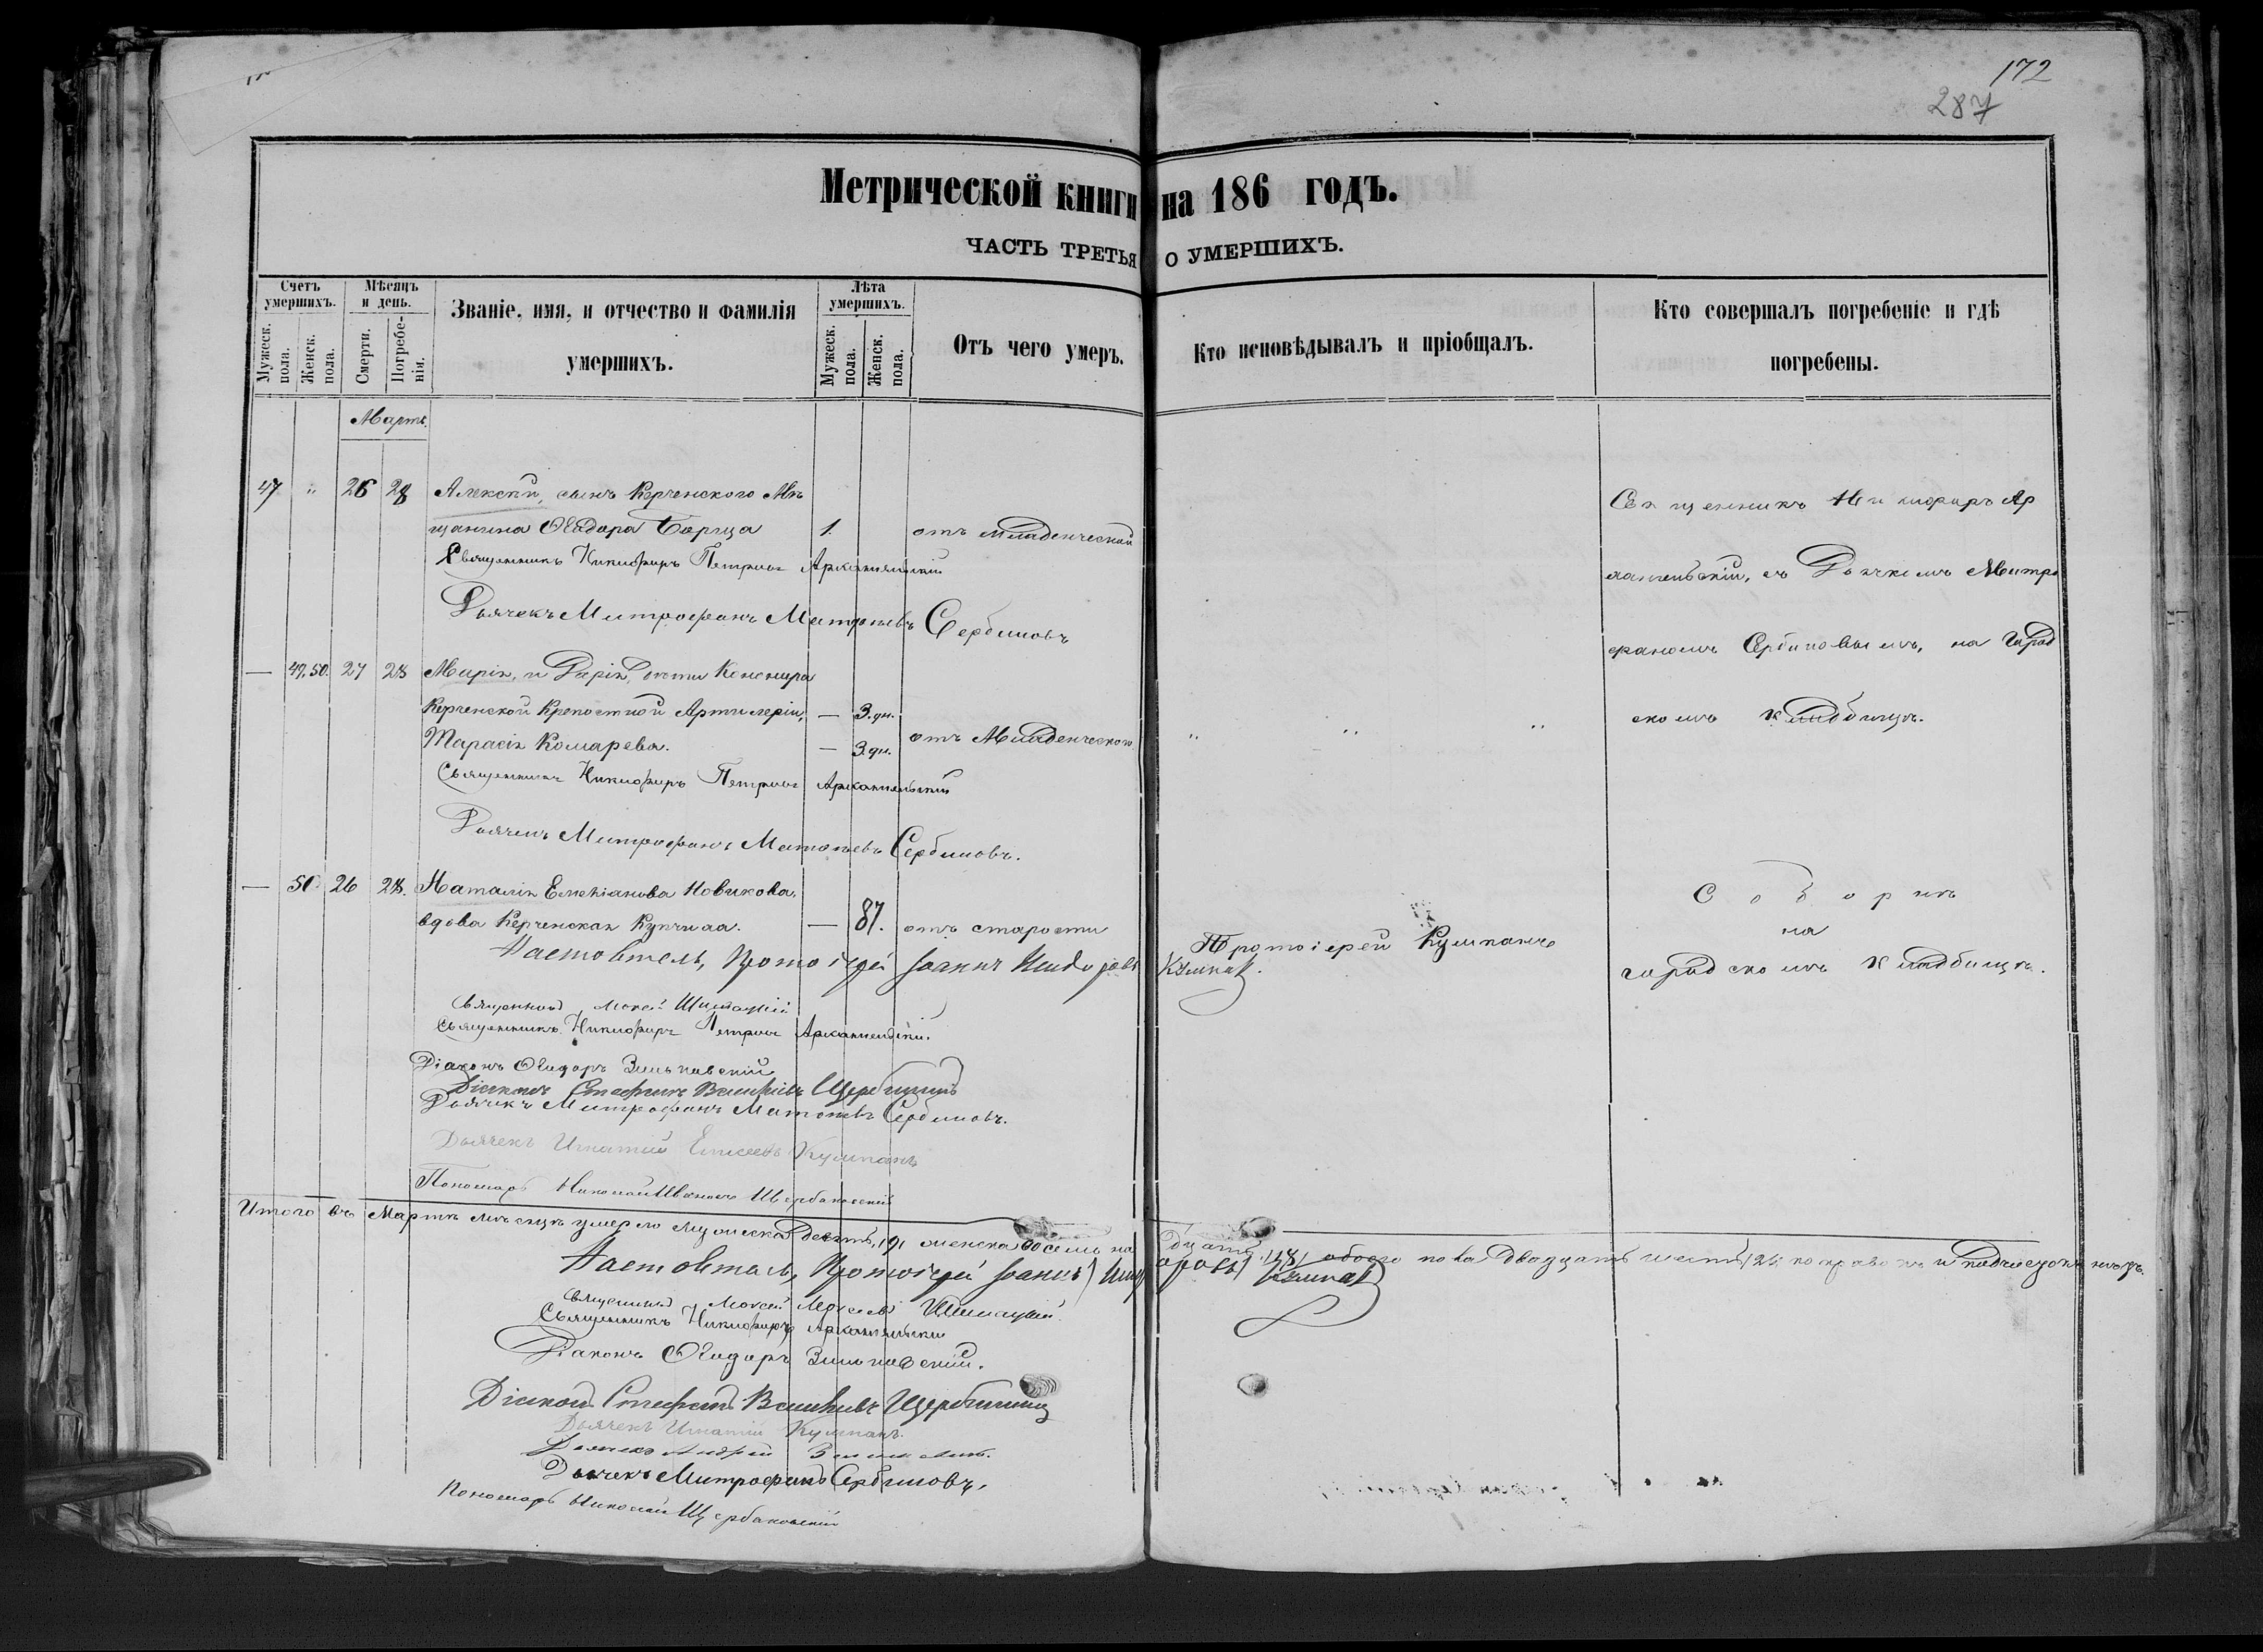 172
287
Метрической книги на 186 годъ.
ЧАСТЬ ТРЕТЬЯ О УМЕРШИХЪ.
Счетъ умершихъ.
Мужеск. пола.
Женск. пола.
Мѣсяцъ и день.
Смерти.
Погребенія.
Званіе, имя, и отчество и фамилія умершихъ.
Лѣта умершихъ.
Мужеск. пола.
Женск. пола.
Отъ чего умеръ.
Кто исповѣдывалъ и пріобщалъ.
Кто совершалъ погребеніе и гдѣ погребены.
Мартъ.
47 " 26 28 Алексѣй, сынъ Керченского Мѣ
щанина Ѳеодора Борща 1. отъ младенческой
Священникъ Никифоръ Петровъ Архангельскій
Дьячекъ Митрофанъ Матѳіевъ Сербиновъ
Священникъ Никифоръ Ар
хангельскій, съ Дьячкомъ Митро
фаномъ Сербиновымъ, на Город
скомъ кладбищѣ.
— 49,50. 27 28 Марія, и Дарія, дѣти
Керченской Крепостной Артилеріи, — 3.дн.
Тарасія Комарева. — 3.дн. отъ Младенческой " " "
Священникъ Никифоръ Петровъ Архангельскій
Дьячекъ Митрофанъ Матѳіевъ Сербиновъ.
— 51. 26 28. Наталія Емеліанова Новикова,
вдова Керченская Купчиха. — 87. отъ старости
Протоіерей Кумпанъ
Соборнѣ
на
городскомъ кладбищѣ.
Настоятель, Протоіерей Іоаннъ Кумпанъ.
Священникъ Моисей
Священникъ Никифоръ Петровъ Архангельскій.
Діаконъ Ѳеодоръ Зиньковскій
Діаконъ Стефанъ Васильевъ
Дьячекъ Митрофанъ Матѳіевъ Сербиновъ.
Дьячекъ Игнатій Елисеевъ Кумпанъ
Пономарь Николай Ивановъ Щербаковскій
Итого въ Мартѣ мѣсяцѣ умерло мужеска девять, /9/ женска восемьнадцать /18/ обоего пола двадцать
Настоятель, Протоіерей Іоаннъ Кумпанъ
Священникъ Моисей
Священникъ Никифоръ Архангельскій
Діаконъ Ѳеодоръ Зиньковскій.
Діаконъ Стефанъ Васильевъ
Дьячекъ Игнатій Кумпанъ.
Дьячекъ Андрей
Дьячекъ Митрофанъ Сербиновъ.
Пономарь Николай Щербаковскій